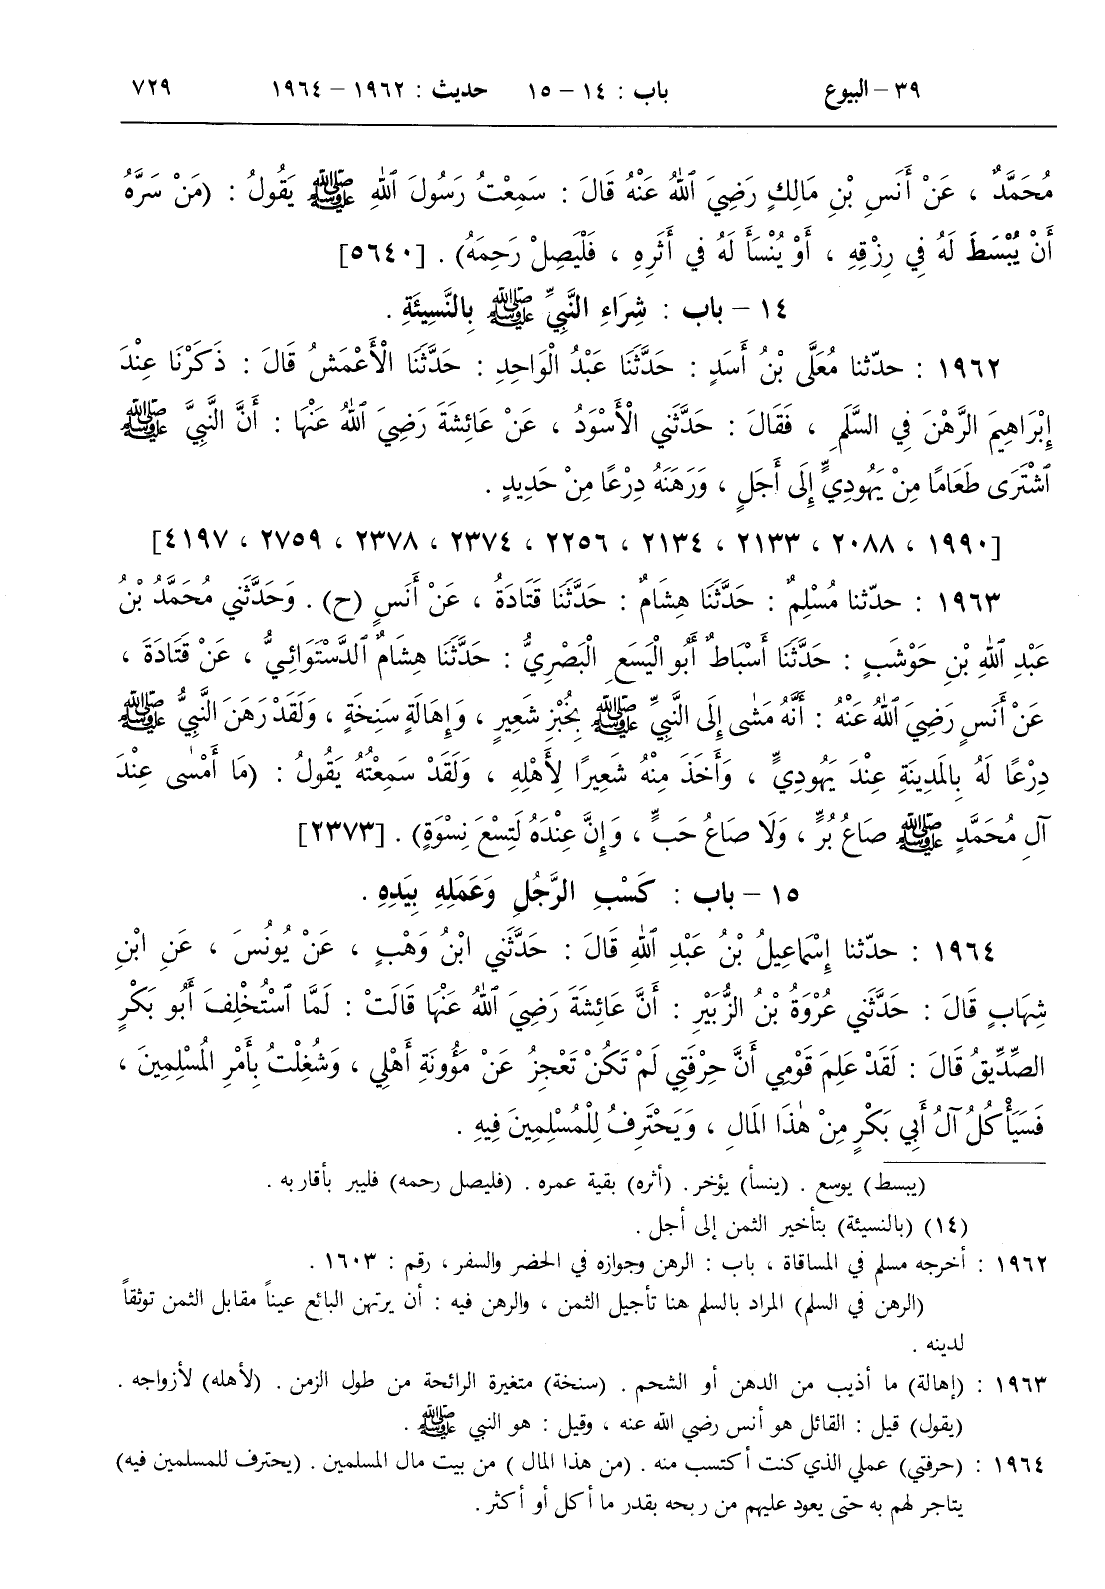 ٣٩ – البيوع باب : ١٤ – ١٥ حديث : ١٩٦٢ – ١٩٦٤ ٧٢٩
مُحَمَّدٌ ، عَنْ أَنَسِ بْنِ مَالِكٍ رَضِيَ ٱللهُ عَنْهُ قَالَ : سَمِعْتُ رَسُولَ ٱللهِ ﷺ يَقُولُ : (مَنْ سَرَّهُ
أَنْ يُبْسَطَ لَهُ فِي رِزْقِهِ ، أَوْ يُنْسَأَ لَهُ فِي أَثَرِهِ ، فَلْيَصِلْ رَحِمَهُ) . [٥٦٤٠]
١٤ – باب : شِرَاءِ النَّبِيِّ ﷺ بِالنَّسِيئَةِ .
١٩٦٢ : حدّثنا مُعَلَّى بْنُ أَسَدٍ : حَدَّثَنَا عَبْدُ الْوَاحِدِ : حَدَّثَنَا الْأَعْمَشُ قَالَ : ذَكَرْنَا عِنْدَ
إِبْرَاهِيمَ الرَّهْنَ فِي السَّلَمِ ، فَقَالَ : حَدَّثَنِي الْأَسْوَدُ ، عَنْ عَائِشَةَ رَضِيَ ٱللهُ عَنْهَا : أَنَّ النَّبِيَّ ﷺ
ٱشْتَرَى طَعَامًا مِنْ يَهُودِيٍّ إِلَى أَجَلٍ ، وَرَهَنَهُ دِرْعًا مِنْ حَدِيدٍ .
[١٩٩٠ ، ٢٠٨٨ ، ٢١٣٣ ، ٢١٣٤ ، ٢٢٥٦ ، ٢٣٧٤ ، ٢٣٧٨ ، ٢٧٥٩ ، ٤١٩٧]
١٩٦٣ : حدّثنا مُسْلِمٌ : حَدَّثَنَا هِشَامٌ : حَدَّثَنَا قَتَادَةُ ، عَنْ أَنَسٍ (ح) . وَحَدَّثَنِي مُحَمَّدُ بْنُ
عَبْدِ ٱللهِ بْنِ حَوْشَبٍ : حَدَّثَنَا أَسْبَاطٌ أَبُو الْيَسَعِ الْبَصْرِيُّ : حَدَّثَنَا هِشَامٌ ٱلدَّسْتَوَائِيُّ ، عَنْ قَتَادَةَ ،
عَنْ أَنَسٍ رَضِيَ ٱللهُ عَنْهُ : أَنَّهُ مَشَى إِلَى النَّبِيِّ ﷺ بِخُبْزِ شَعِيرٍ ، وَإِهَالَةٍ سَنِخَةٍ ، وَلَقَدْ رَهَنَ النَّبِيُّ ﷺ
دِرْعًا لَهُ بِالمَدِينَةِ عِنْدَ يَهُودِيٍّ ، وَأَخَذَ مِنْهُ شَعِيرًا لِأَهْلِهِ ، وَلَقَدْ سَمِعْتُهُ يَقُولُ : (مَا أَمْسٰى عِنْدَ
آلِ مُحَمَّدٍ ﷺ صَاعُ بُرٍّ ، وَلَا صَاعُ حَبٍّ ، وَإِنَّ عِنْدَهُ لَتِسْعَ نِسْوَةٍ) . [٢٣٧٣]
١٥ – باب : كَسْبِ الرَّجُلِ وَعَمَلِهِ بِيَدِهِ .
١٩٦٤ : حدّثنا إِسْمَاعِيلُ بْنُ عَبْدِ ٱللهِ قَالَ : حَدَّثَنِي ابْنُ وَهْبٍ ، عَنْ يُونُسَ ، عَنِ ابْنِ
شِهَابٍ قَالَ : حَدَّثَنِي عُرْوَةُ بْنُ الزُّبَيْرِ : أَنَّ عَائِشَةَ رَضِيَ ٱللهُ عَنْهَا قَالَتْ : لَمَّا ٱسْتُخْلِفَ أَبُو بَكْرٍ
الصِّدِّيقُ قَالَ : لَقَدْ عَلِمَ قَوْمِي أَنَّ حِرْفَتِي لَمْ تَكُنْ تَعْجِزُ عَنْ مَؤُونَةِ أَهْلِي ، وَشُغِلْتُ بِأَمْرِ المُسْلِمِينَ ،
فَسَيَأْكُلُ آلُ أَبِي بَكْرٍ مِنْ هٰذَا المَالِ ، وَيَحْتَرِفُ لِلْمُسْلِمِينَ فِيهِ .
(يبسط) يوسع . (ينسأ) يؤخر . (أثره) بقية عمره . (فليصل رحمه) فليبر بأقاربه .
(١٤) (بالنسيئة) بتأخير الثمن إلى أجل .
١٩٦٢ : أخرجه مسلم في المساقاة ، باب : الرهن وجوازه في الحضر والسفر ، رقم : ١٦٠٣ .
(الرهن في السلم) المراد بالسلم هنا تأجيل الثمن ، والرهن فيه : أن يرتهن البائع عيناً مقابل الثمن توثقاً
لدينه .
١٩٦٣ : (إهالة) ما أذيب من الدهن أو الشحم . (سنخة) متغيرة الرائحة من طول الزمن . (لأهله) لأزواجه .
(يقول) قيل : القائل هو أنس رضي الله عنه ، وقيل : هو النبي ﷺ .
١٩٦٤ : (حرفتي) عملي الذي كنت أكتسب منه . (من هذا المال) من بيت مال المسلمين . (يحترف للمسلمين فيه)
يتاجر لهم به حتى يعود عليهم من ربحه بقدر ما أكل أو أكثر .